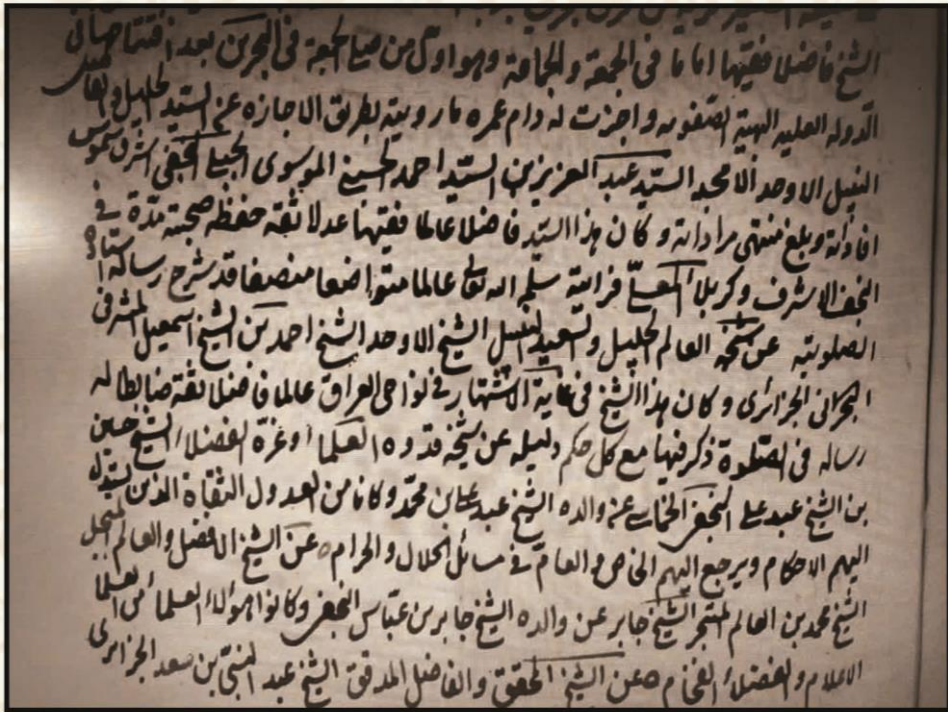 الشيخ فاضلا فقيها اماما فى الجمعة والجماعة وهو اول من صلى الجمعة فى البحرين بعد افتتاحها
الدوله العليه البهية الصفويه واجزت له دام عمره ما رويته بطريق الاجازه عن السيد الجليل
النبيل الاوحد الامجد السيد عبد العزيز بن السيد احمد الحسينى الموسوى النجفى اشرقت شموس
افاداته وبلغ منتهى مراداته وكان هذا السيد فاضلا عالما فقيها عدلا ثقة حفظه صحبته مدة فى
النجف الاشرف وكربلاء المعلى فرايته سلمه الله تعالى عالما متواضعا منصفا قد شرح رسالة
الصلوتيه عن شيخه العالم الجليل والسعيد النبيل الشيخ الاوحد الشيخ احمد بن الشيخ اسمعيل
البحرانى الجزائرى وكان هذا الشيخ فى غاية الاشتهار فى نواحى العراق عالما فاضلا ثقة ضابطا له
رساله فى الصلوة ذكر فيها مع كل حكم دليله عن شيخه قدوه العلماء وغرة الفضلاء الشيخ حسين
بن الشيخ عبد على النجفى الخمايسى عن والده الشيخ عبد على بن محمد وكانا من العدول الثقاة الذين
اليهم الاحكام ويرجع اليهم الخاص والعام فى مسائل الحلال والحرام ه عن الشيخ الافضل والعالم المبجل
الشيخ محمد بن العالم المتبحر الشيخ جابر عن والده الشيخ جابر بن عباس النجفى وكانوا هؤلاء العلماء من العلماء
الاعلام والفضلاء الفخام ه عن الشيخ المحقق والفاضل المدقق الشيخ عبد النبى بن سعد الجزائرى